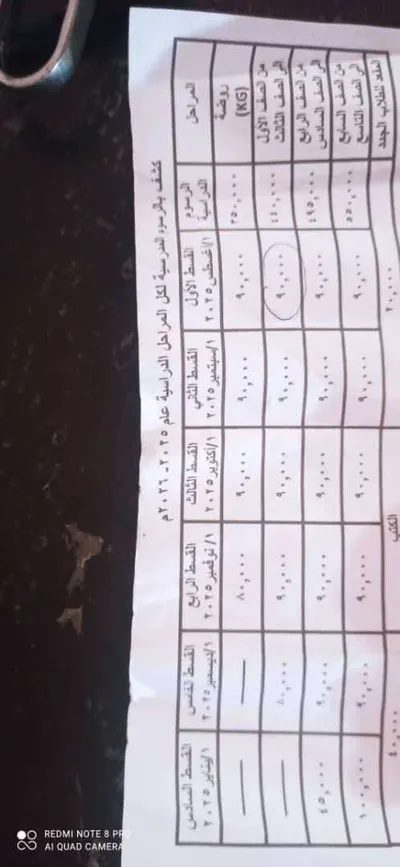 كشف بالرسوم المدرسية لكل المراحل الدراسية عام ٢٠٢٥-٢٠٢٦م
المراحل الرسوم الدراسية القسط الأول ١/أغسطس ٢٠٢٥ القسط الثاني ١/سبتمبر ٢٠٢٥ القسط الثالث ١/أكتوبر ٢٠٢٥ القسط الرابع ١/نوفمبر ٢٠٢٥ القسط الخامس ١/ديسمبر ٢٠٢٥ القسط السادس ١/يناير ٢٠٢٥
روضة (KG) ٣٥٠,٠٠٠ ٩٠,٠٠٠ ٩٠,٠٠٠ ٩٠,٠٠٠ ٨٠,٠٠٠
من الصف الأول الى الصف الثالث ٤٤٠,٠٠٠ ٩٠,٠٠٠ ٩٠,٠٠٠ ٩٠,٠٠٠ ٩٠,٠٠٠ ٨٠,٠٠٠
من الصف الرابع الى الصف السادس ٤٩٥,٠٠٠ ٩٠,٠٠٠ ٩٠,٠٠٠ ٩٠,٠٠٠ ٩٠,٠٠٠ ٩٠,٠٠٠ ٤٥,٠٠٠
من الصف السابع الى الصف التاسع ٥٥٠,٠٠٠ ٩٠,٠٠٠ ٩٠,٠٠٠ ٩٠,٠٠٠ ٩٠,٠٠٠ ٩٠,٠٠٠ ١٠٠,٠٠٠
المقعد للطلاب الجدد ٢٠,٠٠٠ الكتب ٤٠,٠٠٠
REDMI NOTE 8 PRO
AI QUAD CAMERA